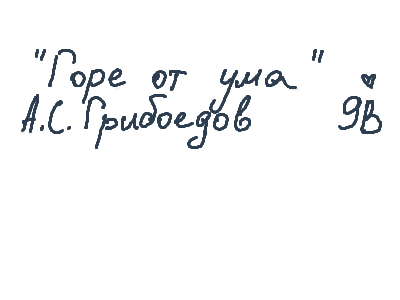 "Горе от ума"
А.С.Грибоедов 9В